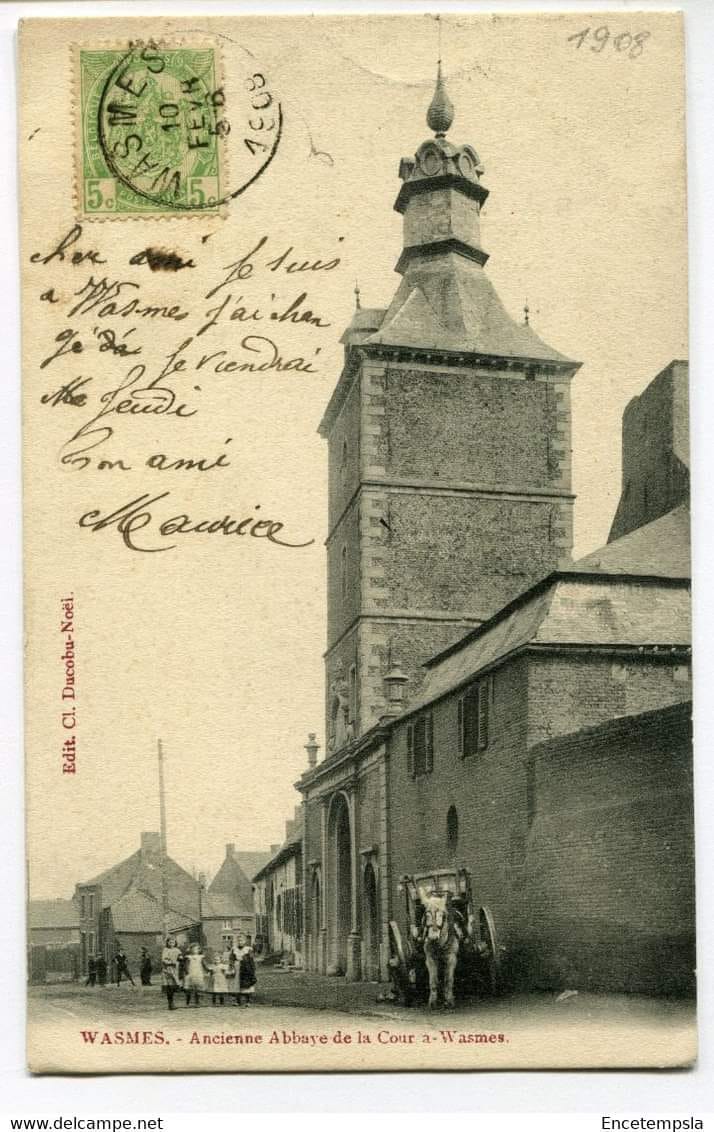 1908
WASMES
10
FEVR
5-6
1908
5c 5c
cher ami Je suis
a Wasmes j'ai chan
gé dá Je viendrai
Me Jeudi
Bon ami
Maurice
Edit. Cl. Ducobu-Noël.
WASMES. - Ancienne Abbaye de la Cour a-Wasmes.
Encetempsla